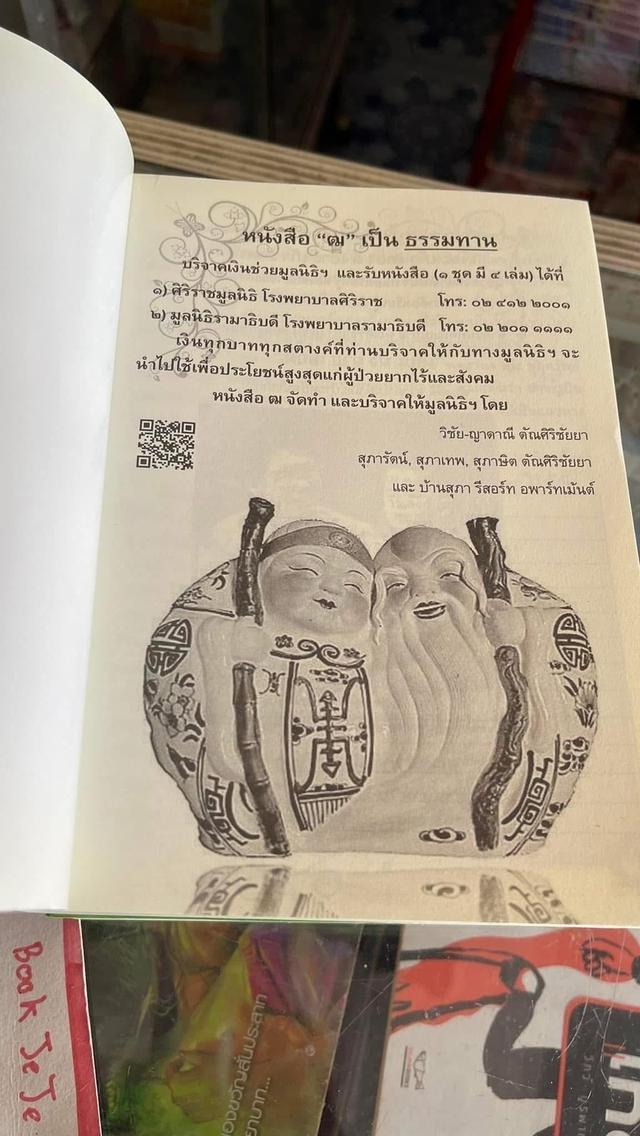 หนังสือ “ฒ” เป็น ธรรมทาน
บริจาคเงินช่วยมูลนิธิฯ และรับหนังสือ (๑ ชุด มี ๔ เล่ม) ได้ที่
๑) ศิริราชมูลนิธิ โรงพยาบาลศิริราช โทร: ๐๒ ๔๑๒ ๒๐๐๑
๒) มูลนิธิรามาธิบดี โรงพยาบาลรามาธิบดี โทร: ๐๒ ๒๐๑ ๑๑๑๑
เงินทุกบาททุกสตางค์ที่ท่านบริจาคให้กับทางมูลนิธิฯ จะ
นำไปใช้เพื่อประโยชน์สูงสุดแก่ผู้ป่วยยากไร้และสังคม
หนังสือ ฒ จัดทำ และบริจาคให้มูลนิธิฯ โดย
วิชัย-ญาดาณี ตัณศิริชัยยา
สุภารัตน์, สุภาเทพ, สุภาษิต ตัณศิริชัยยา
และ บ้านสุภา รีสอร์ท อพาร์ทเม้นต์
Book JeJe